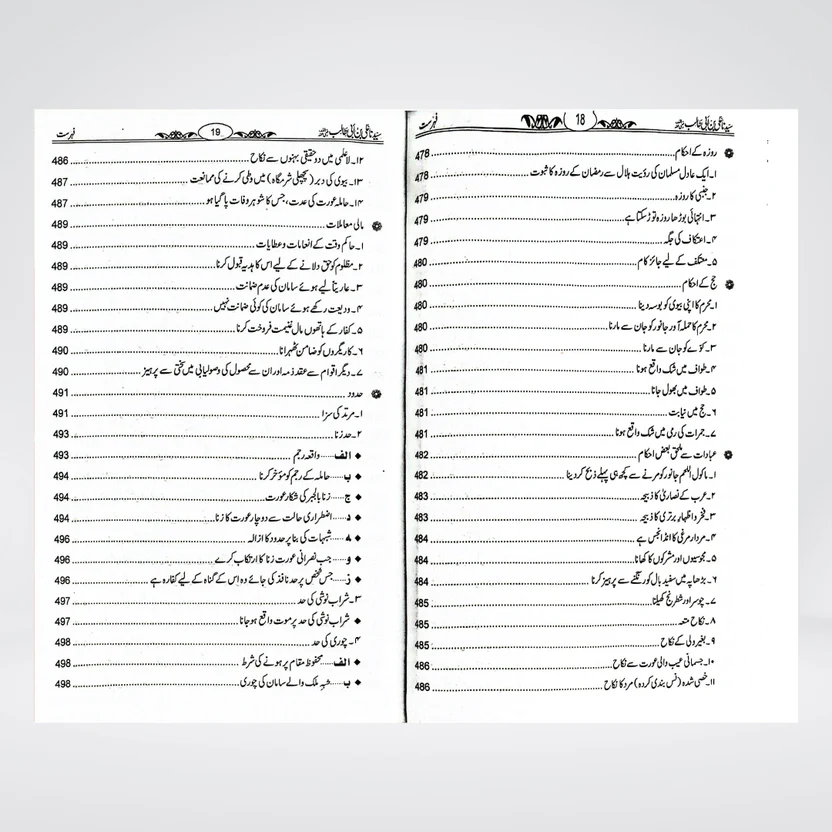 فہرست 18 سیدنا علی بن ابی طالب
روزہ کے احکام 478
۱۔ ایک عادل مسلمان کی رؤیت ہلال سے رمضان کے روزہ کا ثبوت 478
۲۔ جنبی کا روزہ 479
۳۔ انتہائی بوڑھا روزہ توڑ سکتا ہے 479
۴۔ اعتکاف کی جگہ 479
۵۔ معتکف کے لیے جائز کام 480
حج کے احکام 480
۱۔ محرم کا اپنی بیوی کو بوسہ دینا 480
۲۔ محرم کا حملہ آور جانور کو جان سے مارنا 480
۳۔ کوّے کو جان سے مارنا 480
۴۔ طواف میں شک واقع ہونا 481
۵۔ طواف میں بھول جانا 481
۶۔ حج میں نیابت 481
۷۔ جمرات کی رمی میں شک واقع ہونا 481
عبادات سے ملحق بعض احکام 482
۱۔ ماکول اللحم جانور کو مرنے سے کچھ ہی پہلے ذبح کردینا 482
۲۔ عرب کے نصاریٰ کا ذبیحہ 483
۳۔ فخر و اظہارِ برتری کا ذبیحہ 483
۴۔ مردار مرغی کا انڈا نجس ہے 484
۵۔ مجوسیوں اور مشرکوں کا کھانا 484
۶۔ بڑھاپہ میں سفید بال کو رنگنے سے پرہیز کرنا 484
۷۔ چوسر اور شطرنج کھیلنا 485
۸۔ نکاح متعہ 485
۹۔ بغیر ولی کے نکاح 485
۱۰۔ جسمانی عیب والی عورت سے نکاح 486
۱۱۔ خصی شدہ (نس بندی کردہ) مرد کا نکاح 486
فہرست 19 سیدنا علی بن ابی طالب
۱۲۔ لاعلمی میں دو حقیقی بہنوں سے نکاح 486
۱۳۔ بیوی کی دبر (پچھلی شرمگاہ) میں وطی کرنے کی ممانعت 487
۱۴۔ حاملہ عورت کی عدت، جس کا شوہر وفات پا گیا ہو 487
مالی معاملات 489
۱۔ حاکم وقت کے انعامات و عطایات 489
۲۔ مظلوم کو حق دلانے کے لیے اس کا ہدیہ قبول کرنا 489
۳۔ عاریتاً لیے ہوئے سامان کی عدم ضمانت 489
۴۔ ودیعت رکھے ہوئے سامان کی کوئی ضمانت نہیں 489
۵۔ کفار کے ہاتھوں مال غنیمت فروخت کرنا 489
۶۔ کاریگروں کو ضامن ٹھہرانا 490
۷۔ دیگر اقوام سے عقد ذمہ اور ان سے محصول کی وصولیابی میں سختی سے پرہیز 490
حدود 491
۱۔ مرتد کی سزا 491
۲۔ حد زنا 493
الف واقعہ رجم 493
ب حاملہ کے رجم کو مؤخر کرنا 494
ج زنا بالجبر کی شکار عورت 494
د۔ اضطراری حالت سے دوچار عورت کا زنا 494
ہ شبہات کی بنا پر حدود کا ازالہ 496
و جب نصرانی عورت زنا کا ارتکاب کرے 496
ز جس شخص پر حد نافذ کی جائے وہ اس کے گناہ کے لیے کفارہ ہے 496
۳۔ شراب نوشی کی حد 497
شراب نوشی کی حد پر موت واقع ہوجانا 497
۴۔ چوری کی حد 498
الف محفوظ مقام پر ہونے کی شرط 498
ب شبہِ ملک والے سامان کی چوری 498